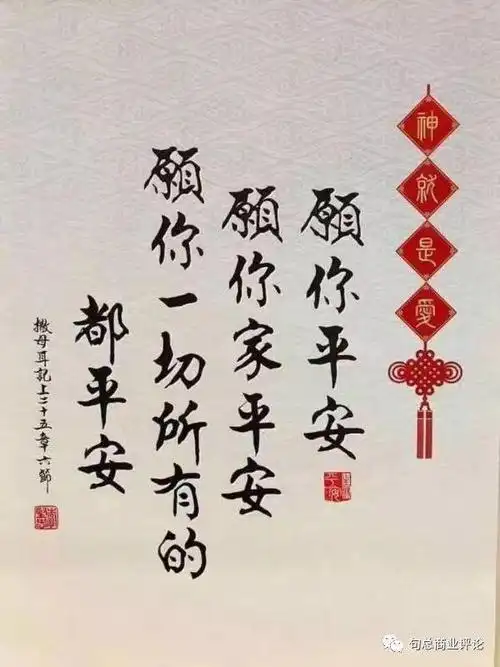 神就是愛
願你平安
願你家平安
願你一切所有的
都平安
撒母耳記上二十五章六節
句总商业评论